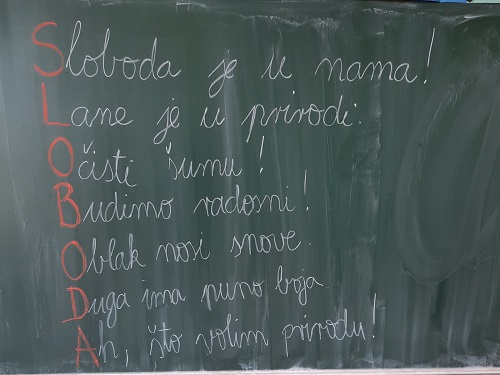 Sloboda je u nama!
Lane je u prirodi.
Očisti šumu!
Budimo radosni!
Oblak nosi snove.
Duga ima puno boja
Ah, što volim prirodu!